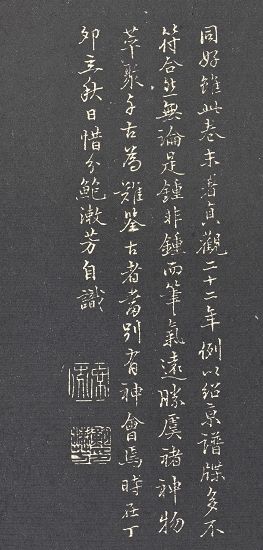 同好雖此卷末書貞觀二十二年例以紹京譜牒多不
符合然無論是鍾非鍾而筆氣遠勝虞褚神物
萃聚千古為難鑒古者當別有神會焉時在丁
卯立秋日惜分鮑漱芳自識